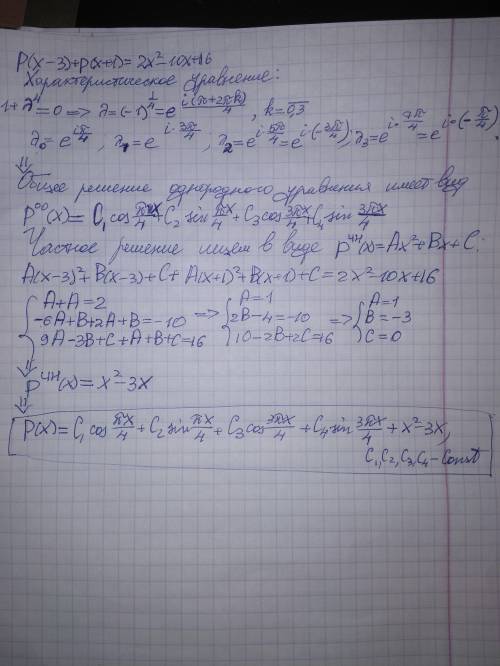 P(x-3)+P(x+1)=2x²-10x+16
Характеристическое уравнение:
1+λ⁴=0 => λ=(-1)^{1/4}=e^{i(π+2πk)/4}, k=0,3
λ₀=e^{iπ/4}, λ₁=e^{i·3π/4}, λ₂=e^{i·5π/4}=e^{i·(-3π/4)}; λ₃=e^{i·7π/4}=e^{i·(-π/4)}
⇓
Общее решение однородного уравнения имеет вид
P^{oo}(x)=C₁cos πx/4+C₂ sin πx/4+C₃cos 3πx/4+C₄ sin 3πx/4
Частное решение ищем в виде P^{ЧН}(x)=Ax²+Bx+C:
A(x-3)²+B(x-3)+C+A(x+1)²+B(x+1)+C=2x²-10x+16
{A+A=2 => {A=1 => {A=1
-6A+B+2A+B=-10 2B-4=-10 B=-3
9A-3B+C+A+B+C=16 10-2B+2C=16 C=0
⇓
P^{ЧН}(x)=x²-3x
⇓
P(x)=C₁cos πx/4+C₂ sin πx/4+C₃cos 3πx/4+C₄ sin 3πx/4+x²-3x,
C₁,C₂,C₃,C₄-const